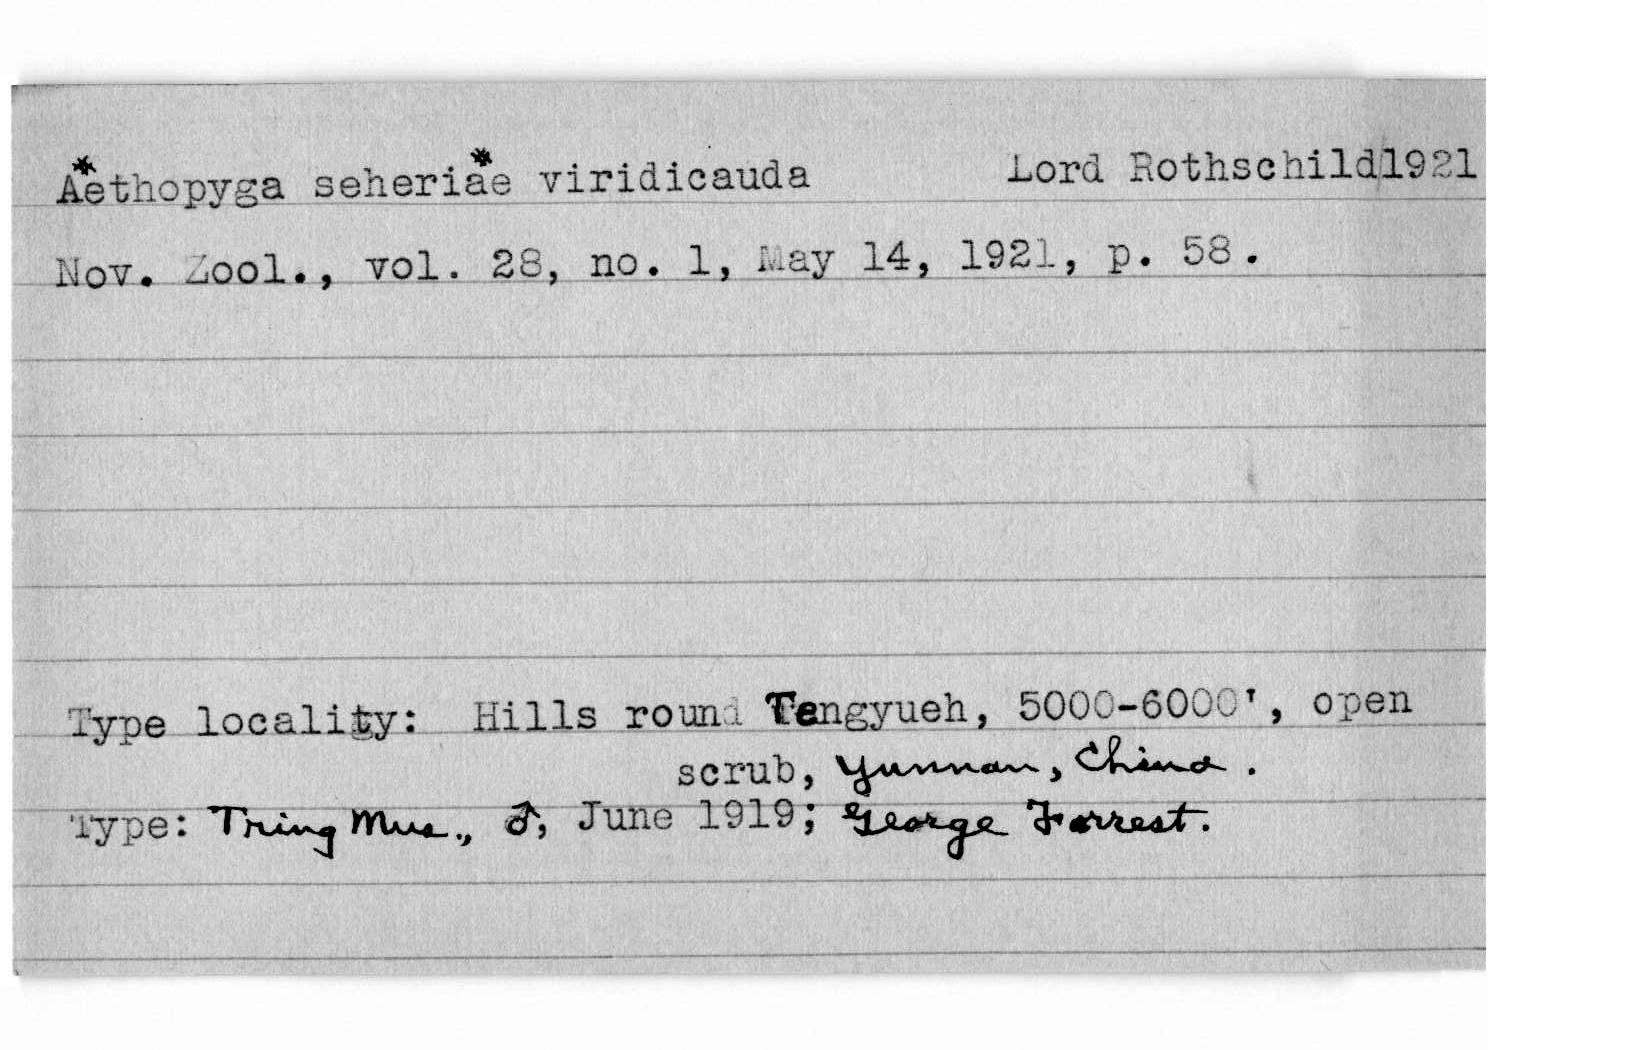 Aethopyga seheriae viridicauda Lord Rothschild 1921
Nov. Zool., vol. 28, no. 1, May 14, 1921, p. 58.
Type locality: Hills round Tengyueh, 5000-6000', open
scrub, Yunnan, China.
Type: Tring Mus., ♂, June 1919; George Forrest.